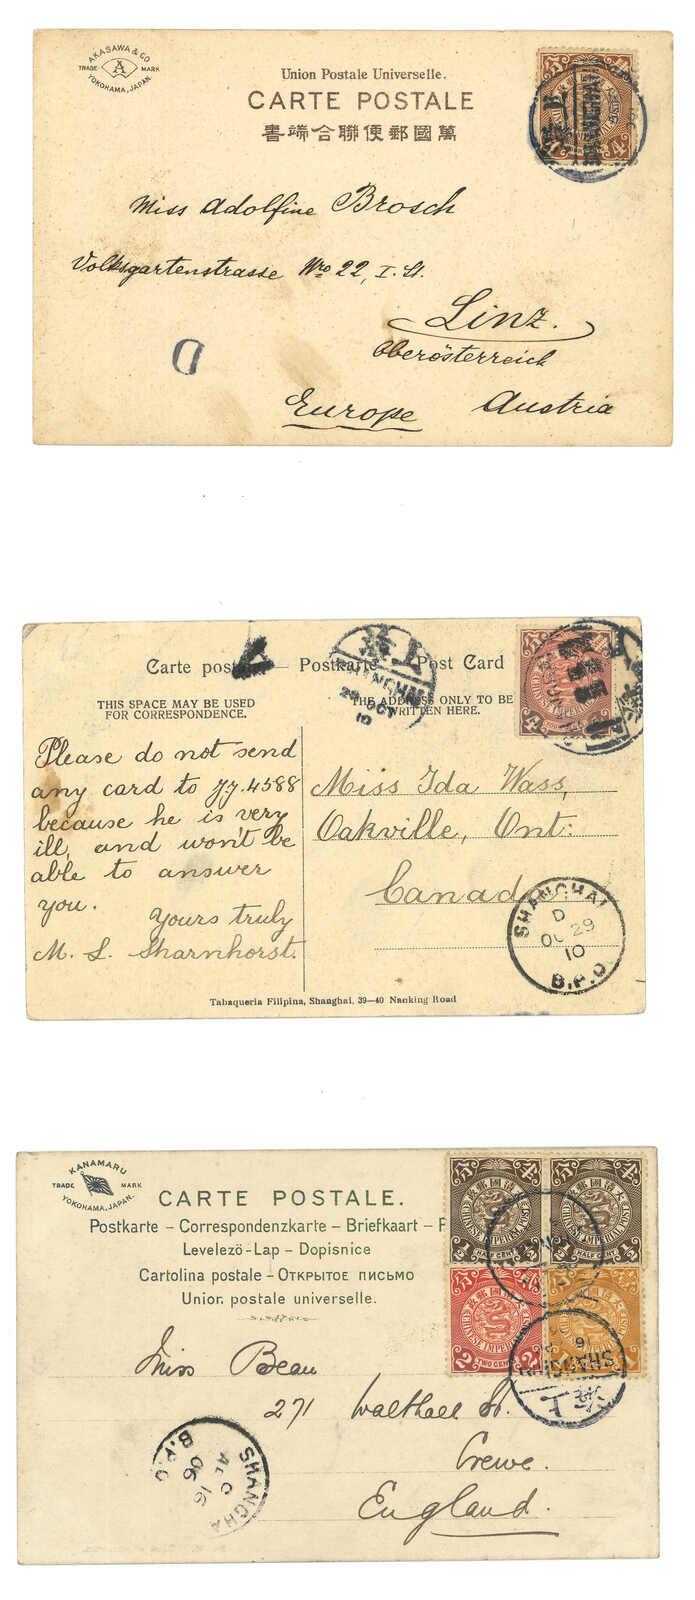 AKASAWA & CO
TRADE A MARK
YOKOHAMA, JAPAN.
Union Postale Universelle.
CARTE POSTALE
書端合聯便郵國萬
SHANGHAI
4
Miss Adolfine Brosch
Volksgartenstrasse Nro 22, I. St.
Linz.
Oberösterreich
Europe Austria
D
Carte post Postkarte Post Card
上海
SHANGHAI
29 OCT
10
THIS SPACE MAY BE USED
FOR CORRESPONDENCE.
THE ADDRESS ONLY TO BE
WRITTEN HERE.
Please do not send
any card to JJ.4588
because he is very
ill, and won't be
able to answer
you.
Yours truly
M. L. Sharnhorst.
Miss Ida Wass,
Oakville, Ont:
Canada
SHANGHAI
D
OC 29
10
B.P.O.
Tabaqueria Filipina, Shanghai, 39—40 Nanking Road
KANAMARU
TRADE MARK
YOKOHAMA, JAPAN.
CARTE POSTALE.
Postkarte – Correspondenzkarte – Briefkaart – F
Levelező-Lap – Dopisnice
Cartolina postale – Открытое письмо
Union postale universelle.
大清國郵政
CHINESE IMPERIAL POST
1/2 HALF CENT 1/2
1/2 HALF CENT 1/2
2 TWO CENTS 2
1
SHANGHAI
上海
Miss Beau
271 Walthall St.
Crewe.
England.
SHANGHA
C
16
06
B.P.O